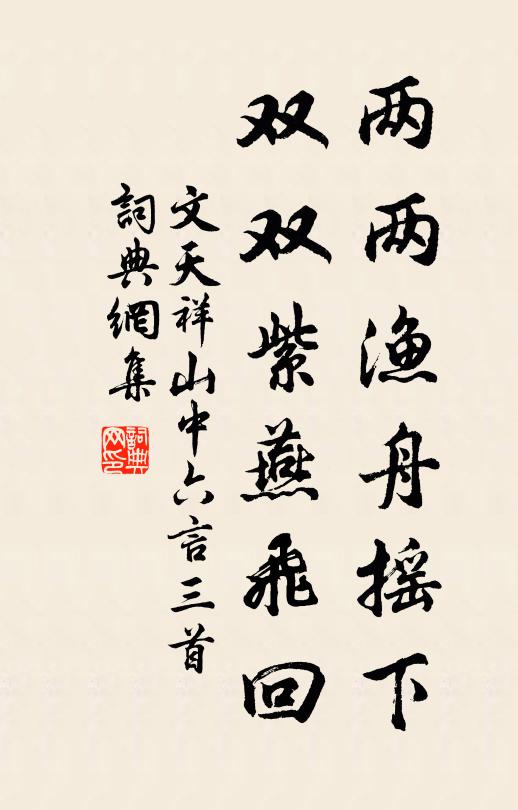 两两渔舟摇下
双双紫燕飞回
文天祥山中六言三首
詞典網集
詞典网印